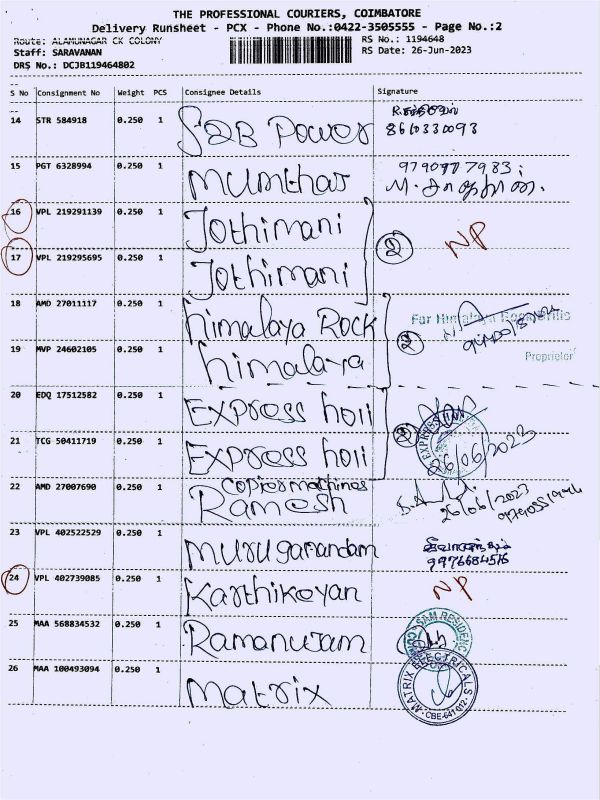 THE PROFESSIONAL COURIERS, COIMBATORE
Delivery Runsheet - PCX - Phone No.:0422-3505555 - Page No.:2
Route: ALAMUNAGAR CK COLONY RS No.: 1194648
Staff: SARAVANAN RS Date: 26-Jun-2023
DRS No.: DCJB119464802
S No Consignment No Weight PCS Consignee Details Signature
14 STR 584918 0.250 1 S2B Power
8610330093
15 PGT 6328994 0.250 1 Mumthas
16 VPL 219291139 0.250 1 Jothimani
17 VPL 219295695 0.250 1 Jothimani 2 NP
18 AMD 27011117 0.250 1 himalaya Rock For Himalaya
19 MVP 24602105 0.250 1 himalaya 2 Proprietor
20 EDQ 17512582 0.250 1 Express hoii
21 TCG 50411719 0.250 1 Express hoii 2 EXPRESS 26/06/2023
22 AMD 27007690 0.250 1 Copier machines
Ramesh 26/06/2023
23 VPL 402522529 0.250 1 Muruganandam
9976684516
24 VPL 402739085 0.250 1 Karthikeyan NP
25 MAA 568834532 0.250 1 Ramanujam SAM RESIDENC
26 MAA 100493094 0.250 1 Matrix MATRIX ELECTRICALS CBE-641 012